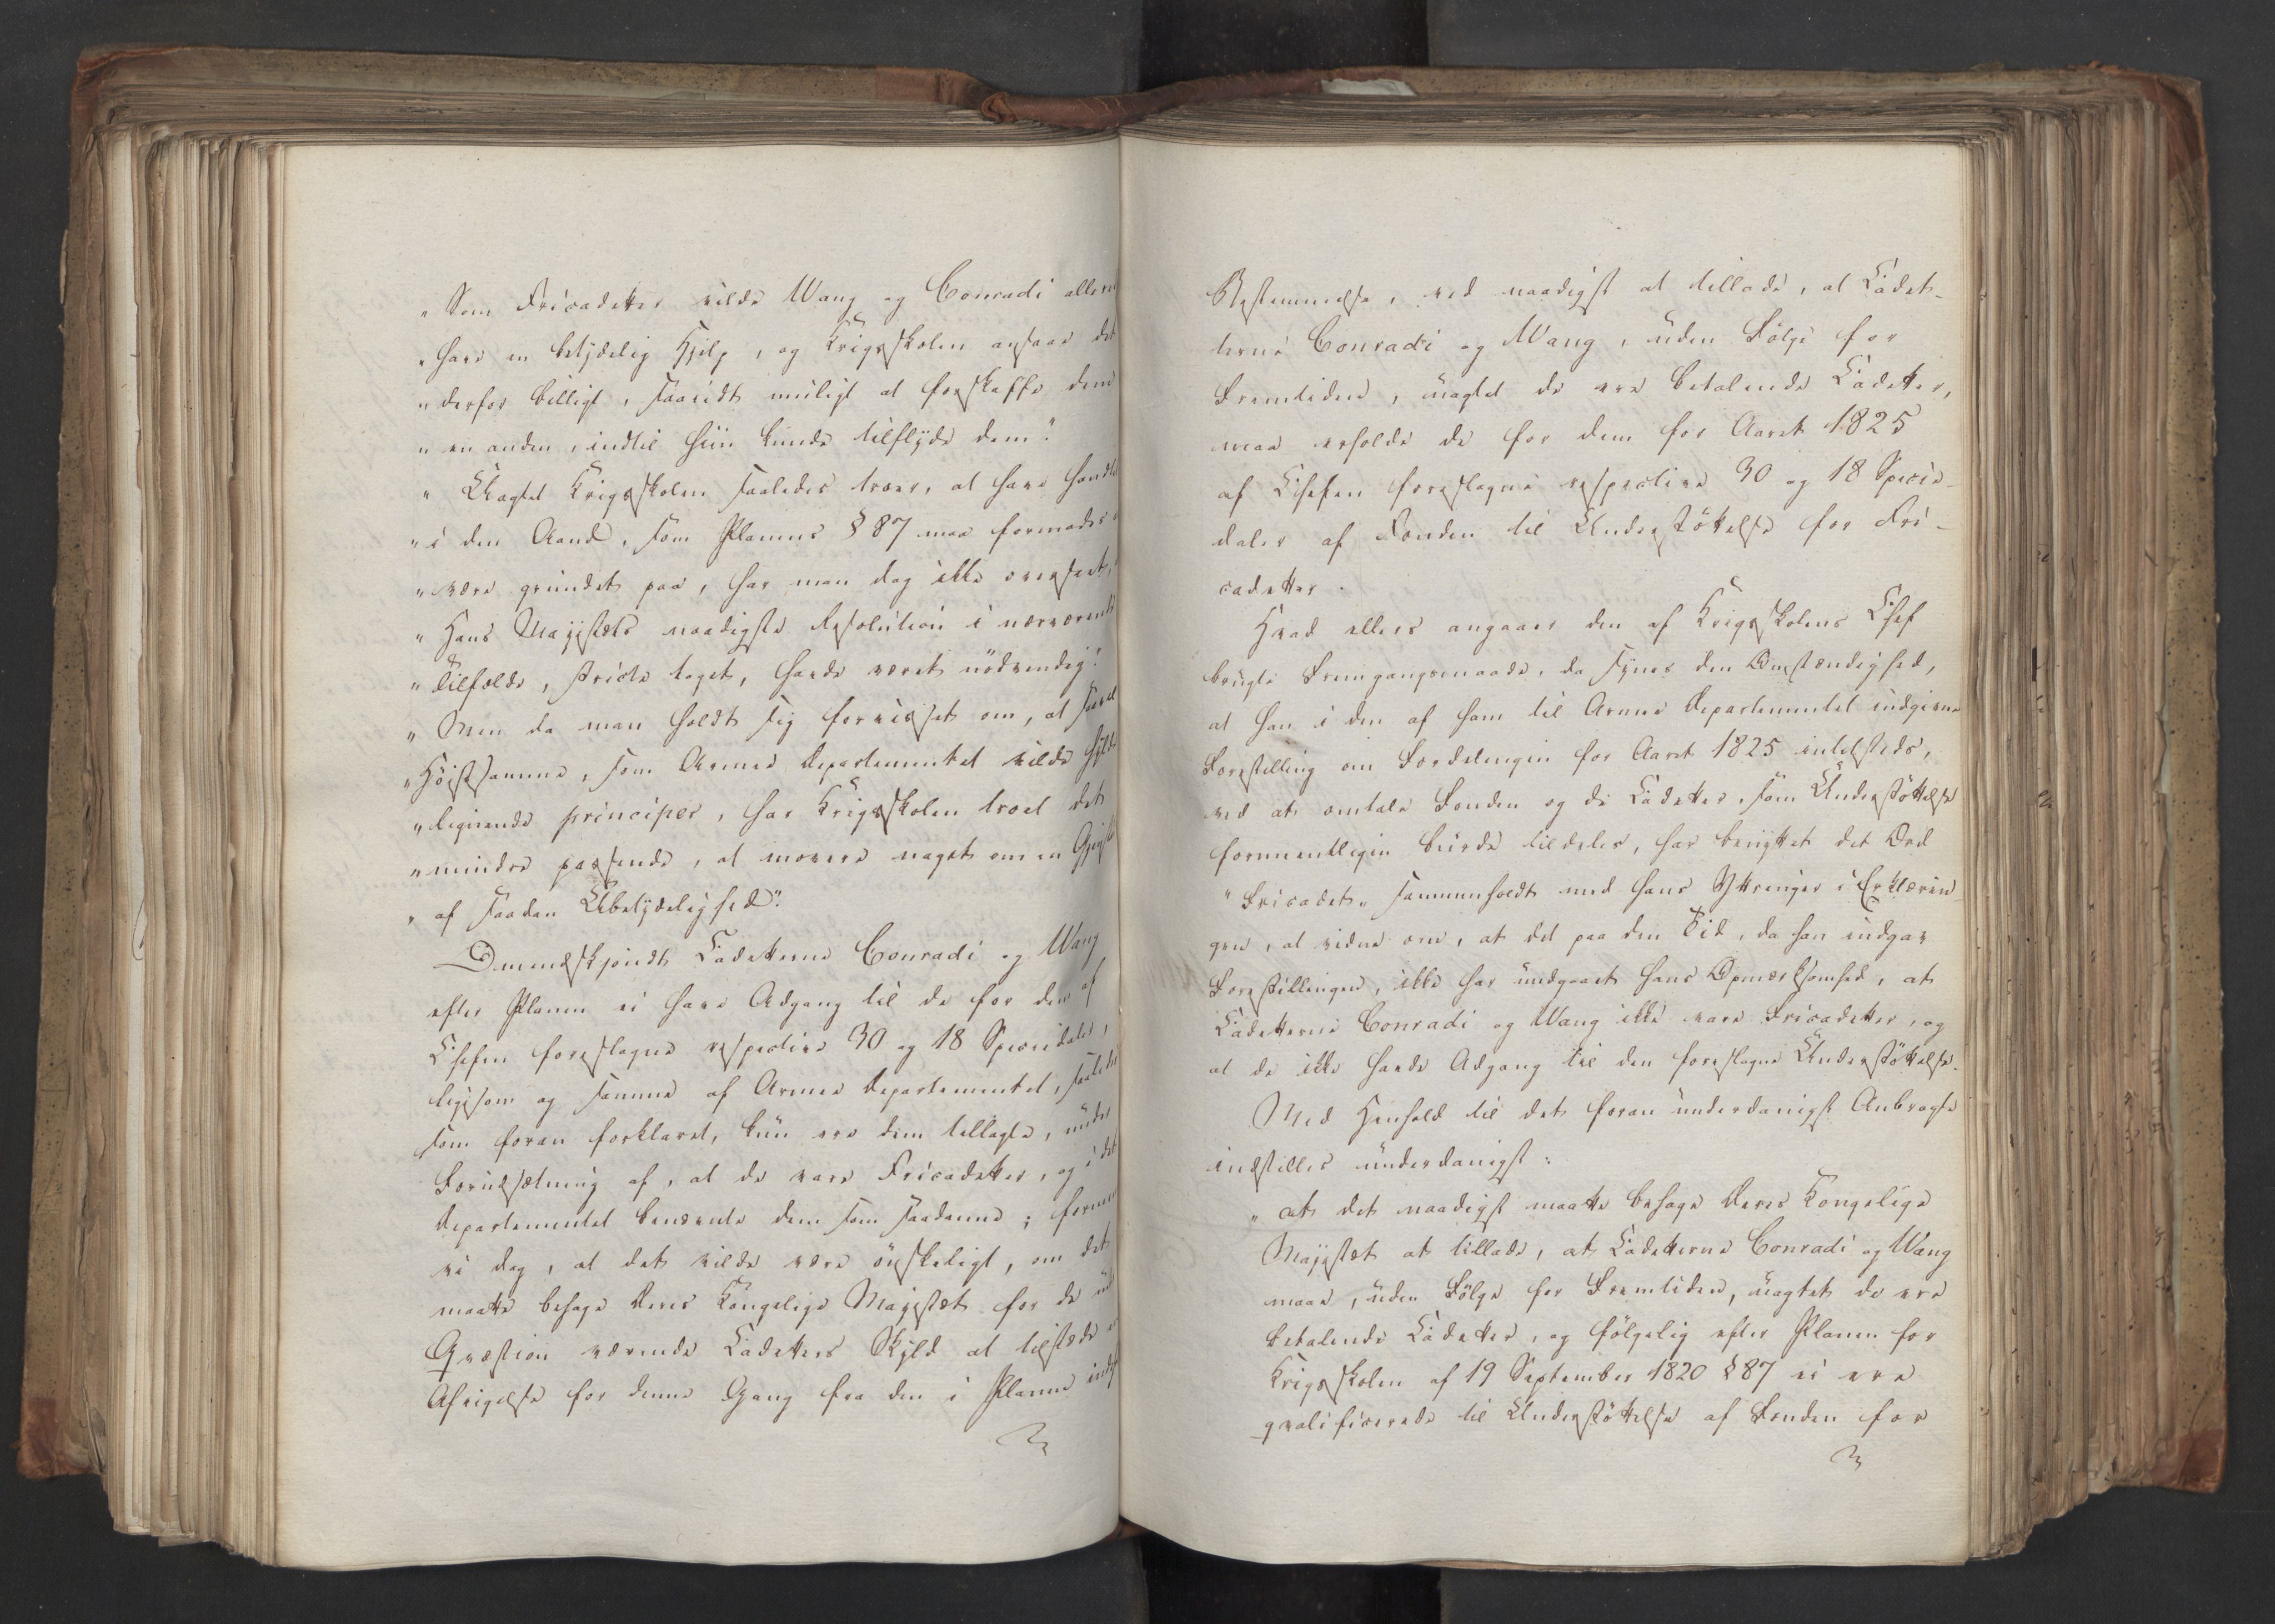 „Som Fricadetter vilde Wang og Conradi allere
„have en betydelig Hjelp, og Krigsskolen ansaae det
„derfor billigt, saavidt muligt at forskaffe dem
„en anden, indtil hiin kunde tilflyde dem."
„Uagtet Krigsskolen saaledes troer, at have handlet
„i den Aand, som Planens § 87 maa formodes
„være grundet paa, har man dog ikke overseet,
„Hans Majestæts naadigste Resolution i nærværende
„Tilfælde, stricte taget, havde været nödvendig.
„Men da man holdt sig forvisset om, at saavel
„Höistsamme, som Armee Departementet vilde hylde
„lignende principer, har Krigsskolen troet det
„mindre passende, at movere noget om en Gjenst
„af saadan Ubetydelighed."
Omendskjöndt Cadetterne Conradi og Wang
efter Planen ei have Adgang til de for dem af
Chefen foreslagne respective 30 og 18 Speciedaler,
ligesom og samme af Armee Departementet, saaledes
som foran forklaret, kun ere dem tillagte, under
Forudsætning af, at de vare Fricadetter, og i det
Departementet benævnte dem som saadanne; formene
vi dog, at det vilde være önskeligt, om det
maatte behage Deres Kongelige Majestæt for de
Qvæstion værende Cadetters Skyld at tilstæde
Afvigelse for denne Gang fra den i Planen inds
Bestemmelse, ved naadigst at tillade, at Cadet-
terne Conradi og Wang, uden Fölge for
Fremtiden, uagtet de ere betalende Cadetter,
maa erholde de for dem for Aaret 1825
af Chefen foreslagne respective 30 og 18 Specie-
daler af Fonden til Understöttelse for Fri-
cadetter.
Hvad ellers angaaer den af Krigsskolens Chef
brugte Fremgangsmaade, da synes den Omstændighed,
at han i den af ham til Armee Departementet indgivne
Forestilling om Fordelingen for Aaret 1825 intetsteds,
ved at omtale Fonden og de Cadetter, som Understöttelse
formeentligen burde tildeles, har benyttet det Ord
„Fricadet„ sammenholdt med hans Yttringer i Erklærin-
gen, at vidne om, at det paa den Tid, da han indgav
Forestillingen, ikke har undgaaet hans Opmærksomhed, at
Cadetterne Conradi og Wang ikke vare Fricadetter, og
at de ikke havde Adgang til den foreslagne Understöttelse.
Med Henhold til det foran underdanigst Anbragte
indstilles underdanigst:
„at det naadigst maatte behage Deres Kongelige
Majestæt at tillade, at Cadetterne Conradi og Wang
maae, uden Fölge for Fremtiden, uagtet de ere
betalende Cadetter, og fölgelig efter Planen for
Krigsskolen af 19 September 1820 § 87 ei ere
qvalificerede til Understöttelse af Fonden for